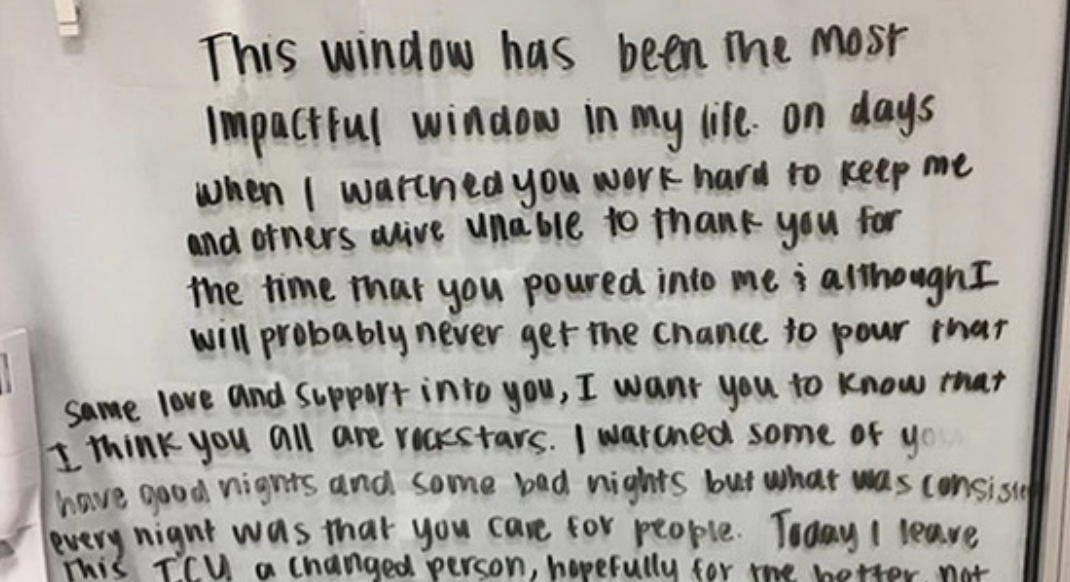 This window has been the most
Impactful window in my life. on days
when I watched you work hard to keep me
and others alive unable to thank you for
the time that you poured into me & although I
will probably never get the chance to pour that
same love and support into you, I want you to know that
I think you all are rockstars. I watched some of you
have good nights and some bad nights but what was consistent
every night was that you care for people. Today I leave
This ICU a changed person, hopefully for the better not